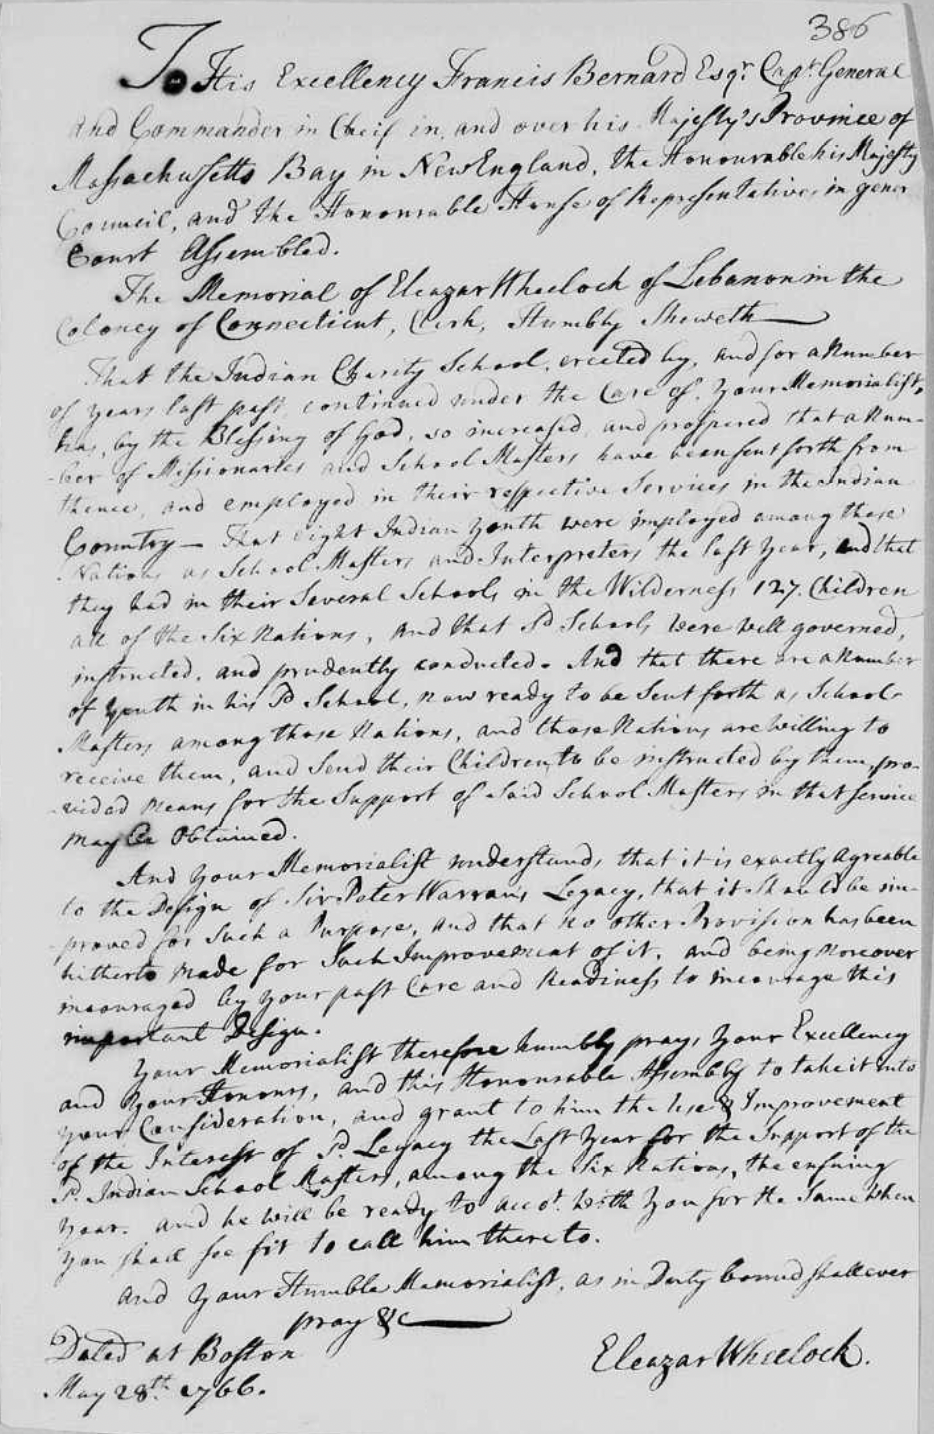 386
To His Excellency Francis Bernard Esqr. Capt. General
and Commander in Cheif in, and over his Majesty's Province of
Massachussetts Bay in New England, the Honourable his Majesty
Council, and the Honourable House of Representatives in gener
Court Assembled.
The Memorial of Eleazar Wheelock of Lebanon in the
Coloney of Connecticut, Clerk, Humbly Sheweth
That the Indian Charity School, erected by, and for a Number
of years last past, continued under the Care of, your Memorialist,
has, by the Blessing of God, so increased, and prospered that a Num-
-ber of Missionaries and School Masters have been sent forth from
thence, and employed in their respective Services in the Indian
Country — That eight Indian Youth were imployed among those
Nations as School Masters and Interpreters the last Year, and that
they had in their Several Schools in the Wilderness 127. Children
all of the Six Nations, and that Sd Schools were well governed,
instructed, and prudently conducted. And that there are a Number
of Youth in his Sd School, now ready to be Sent forth as School-
Masters among those Nations, and those Nations are willing to
receive them, and Send their Children to be instructed by them, pro-
-vided Means for the Support of Said School Masters in that Service
may be Obtained.
And Your Memorialist understands that it is exactly Agreable
to the Design of Sir Peter Warran's Legacy, that it should be im-
-proved for Such a Purpose, and that no other Provision has been
hitherto made for Such Improvement of it, and being moreover
incouraged by your past Care and Readiness to incourage this
important Design.
Your Memorialist therefore humbly prays Your Excellency
and Your Honours, and this Honourable Assembly to take it into
your Consideration, and grant to him the Use & Improvement
of the Interest of Sd. Legacy the Last Year for the Support of the
Sd. Indian School Masters, among the Six Nations, the ensuing
Year. and he will be ready to accot. with You for the Same when
You shall see fit to call him thereto.
And Your Humble Memorialist, as in Duty bound shall ever
pray &c
Dated at Boston
May 28th. 1766.
Eleazar Wheelock.